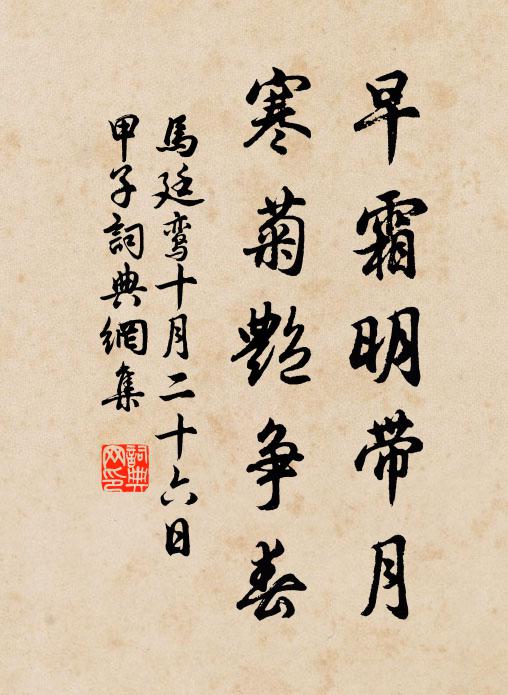 早霜明带月
寒菊艷争春
馬廷鸾十月二十六日
甲子詞典網集
詞典网印